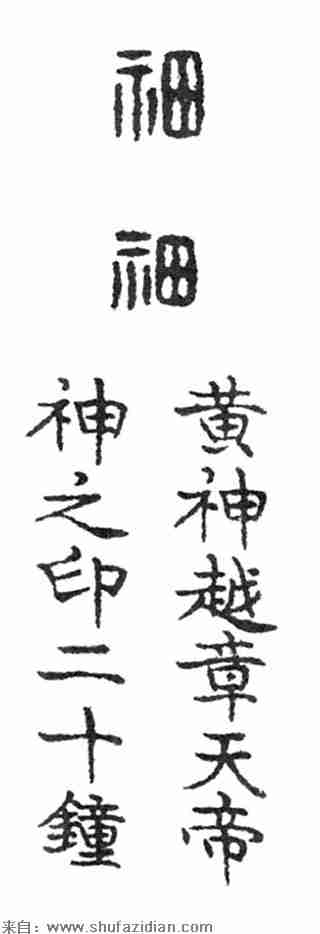 神
神
黄神越章天帝
神之印二十鐘
来自：www.shufazidian.com